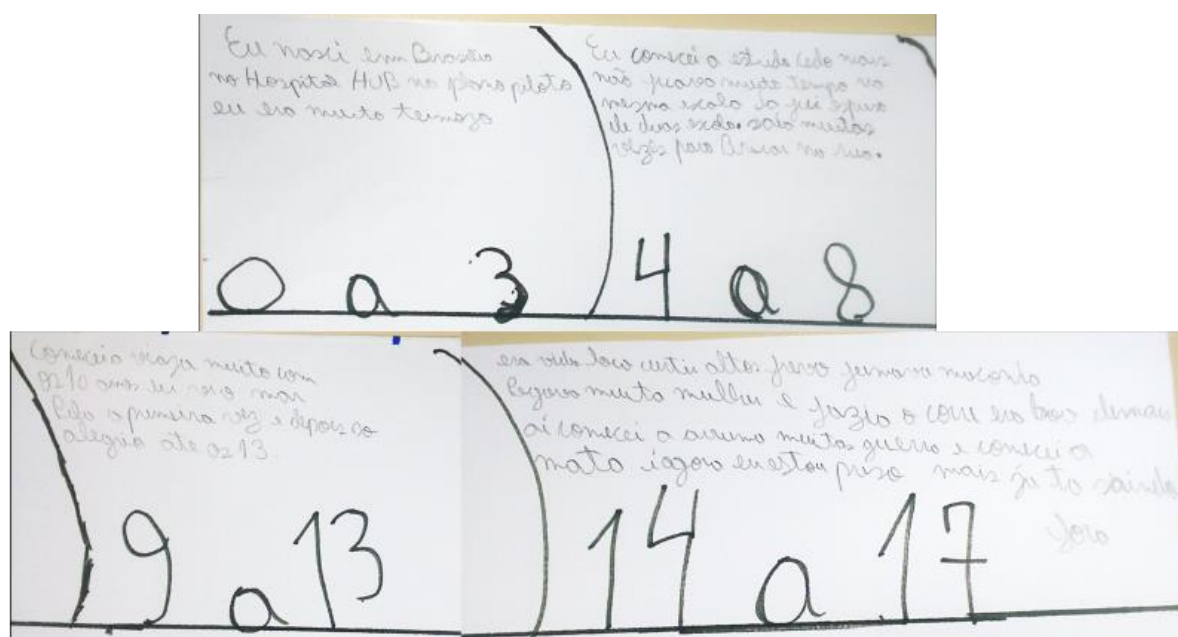 Eu nasci em Brasilia
no Hospital HUB no plano piloto
eu era muito teimozo
0 a 3
Eu comecei a estuda cedo mais
não ficava muito tempo na
mesma escola ja fui
de duas escolas muitas
vezes para Brincar na rua.
4 a 8
comecei a viaja muito com
os 10 anos eu o mar
Pela a primeira vez e depois so
alegria ate os 13.
9 a 13
era vida loca curti altos fumava maconha
Pegava muita mulher e fazia o corre era demais
ai comecei a arruma muitas guerra e comecei a
mata i agora eu estou preso mais ja to saindo
fora
14 a 17